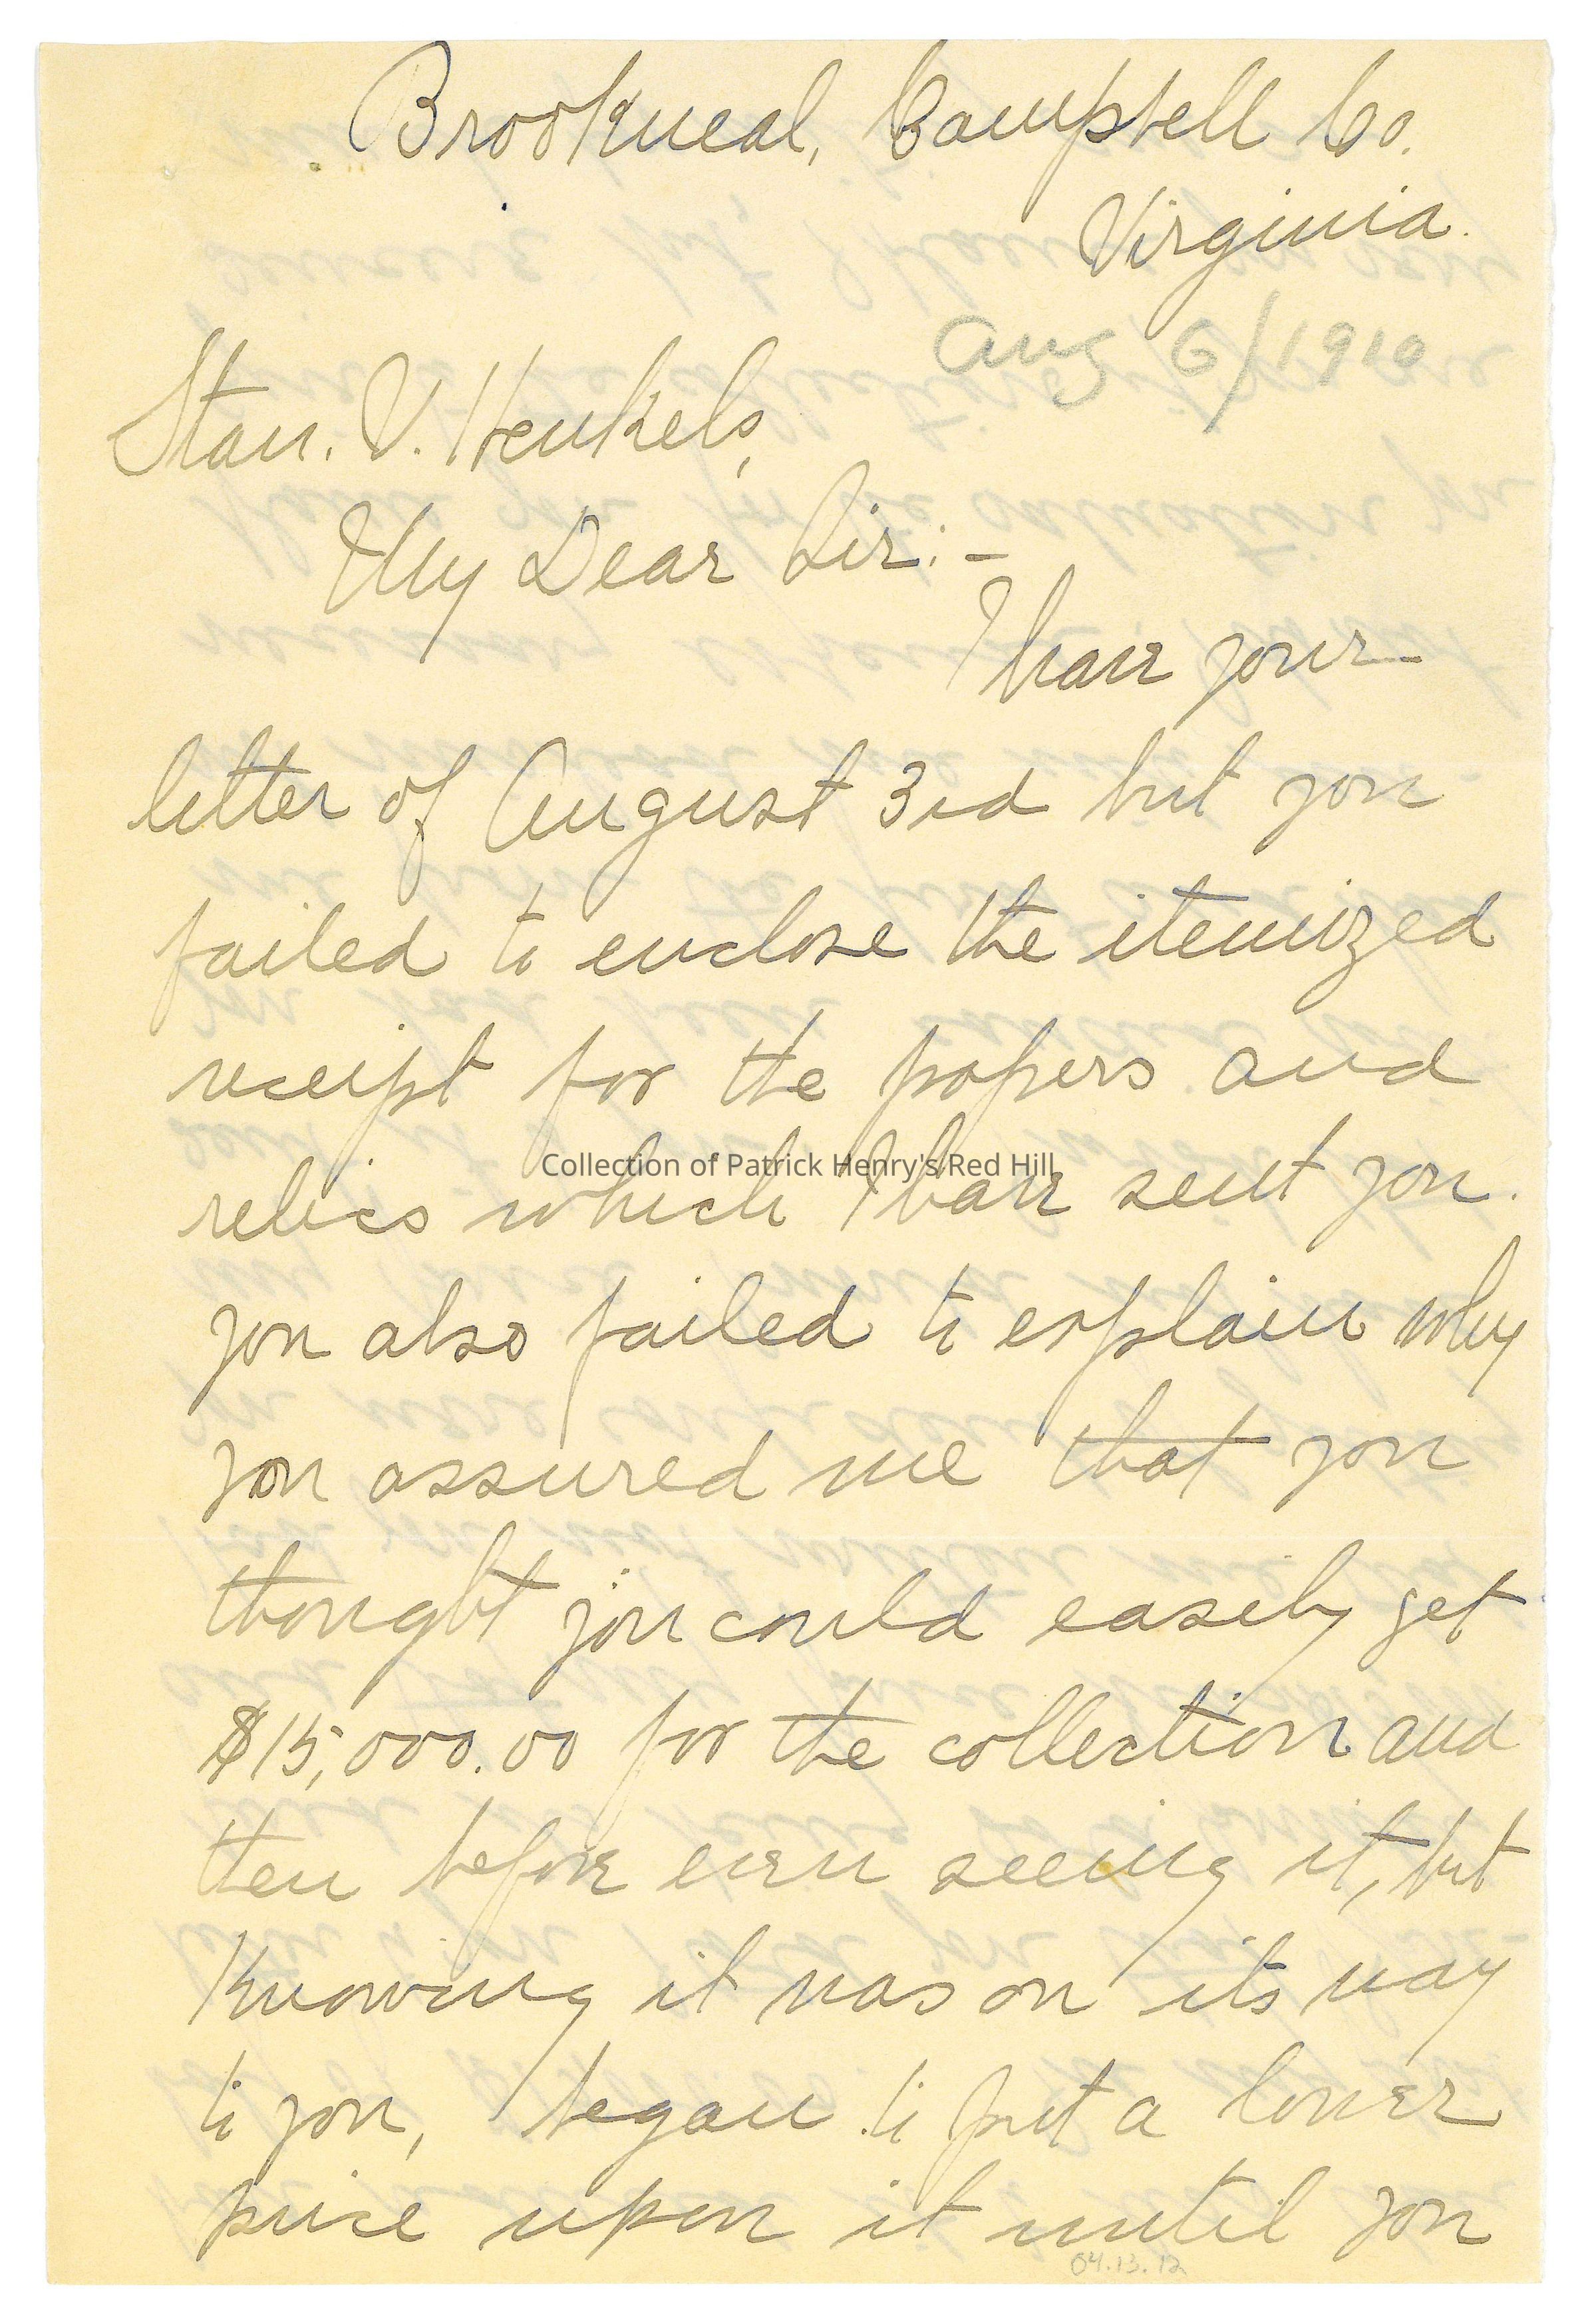 Brookneal, Campbell Co.
Virginia.
Aug 6/1910
Stan. V. Henkels,
My Dear Sir:-
I have your
letter of August 3rd but you
failed to enclose the itemized
receipt for the papers and
Collection of Patrick Henry's Red Hill
relics which I have sent you.
you also failed to explain why
you assured me that you
thought you could easily get
$15,000.00 for the collection and
then before even seeing it, but
knowing it was on its way
to you, began to put a lower
price upon it until you
04.13.12